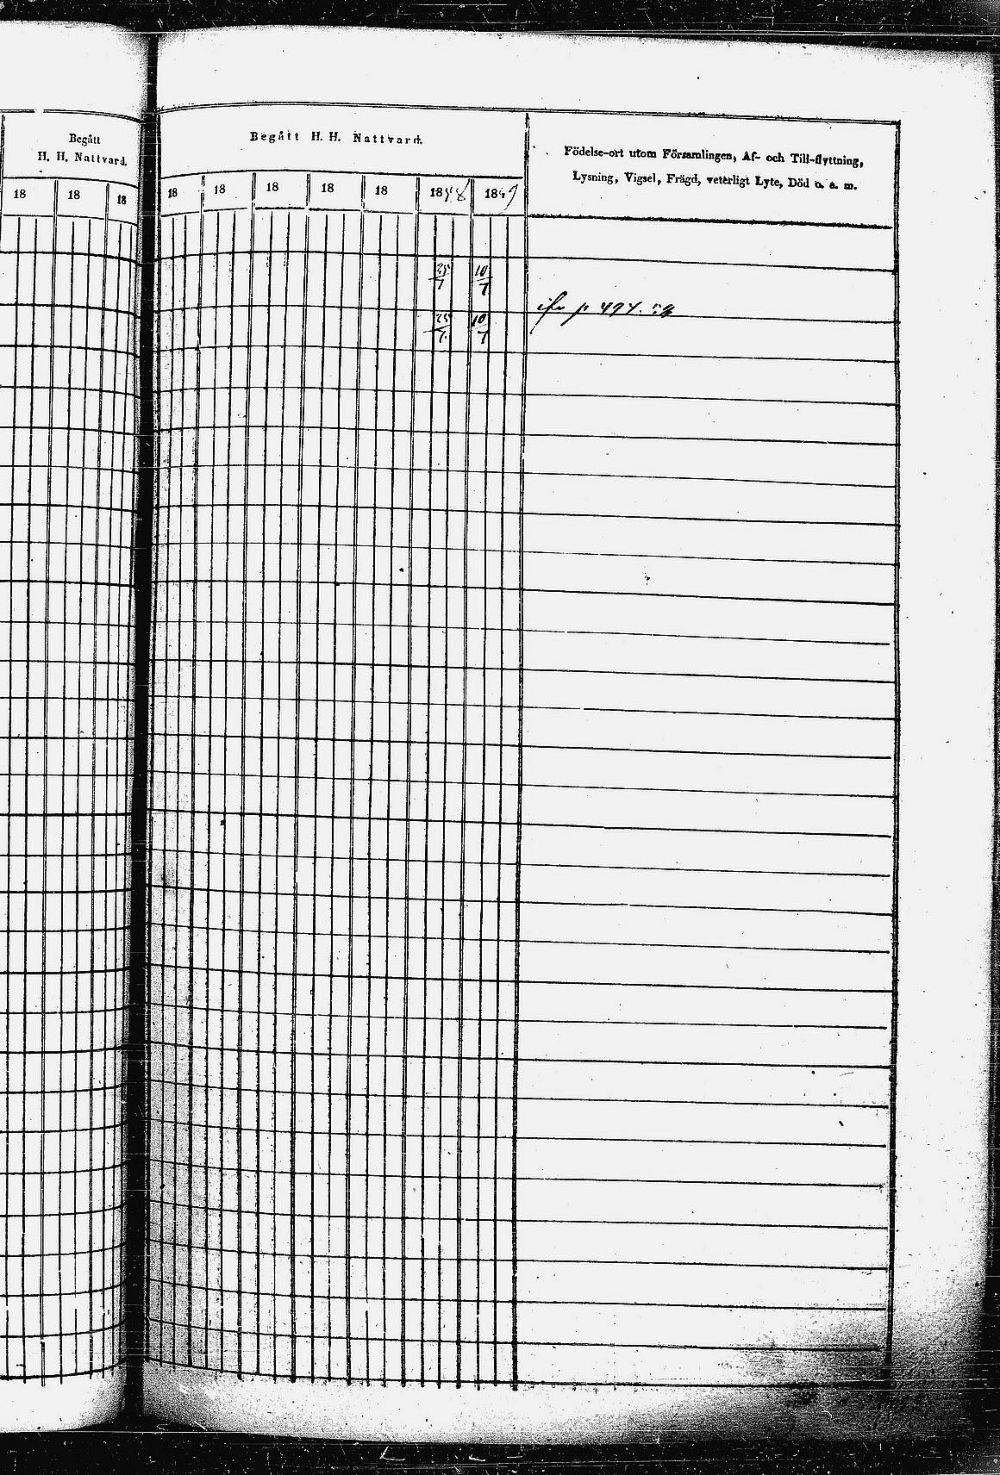 Begått
H. H. Nattvard.
18 18 18
Begått H. H. Nattvard.
18 18 18 18 18 1848 1849
Födelse-ort utom Församlingen, Af- och Till-flyttning,
Lysning, Vigsel, Frägd, veterligt Lyte, Död o. s. m.
25/7 10/7
p 494.
25/7 10/7